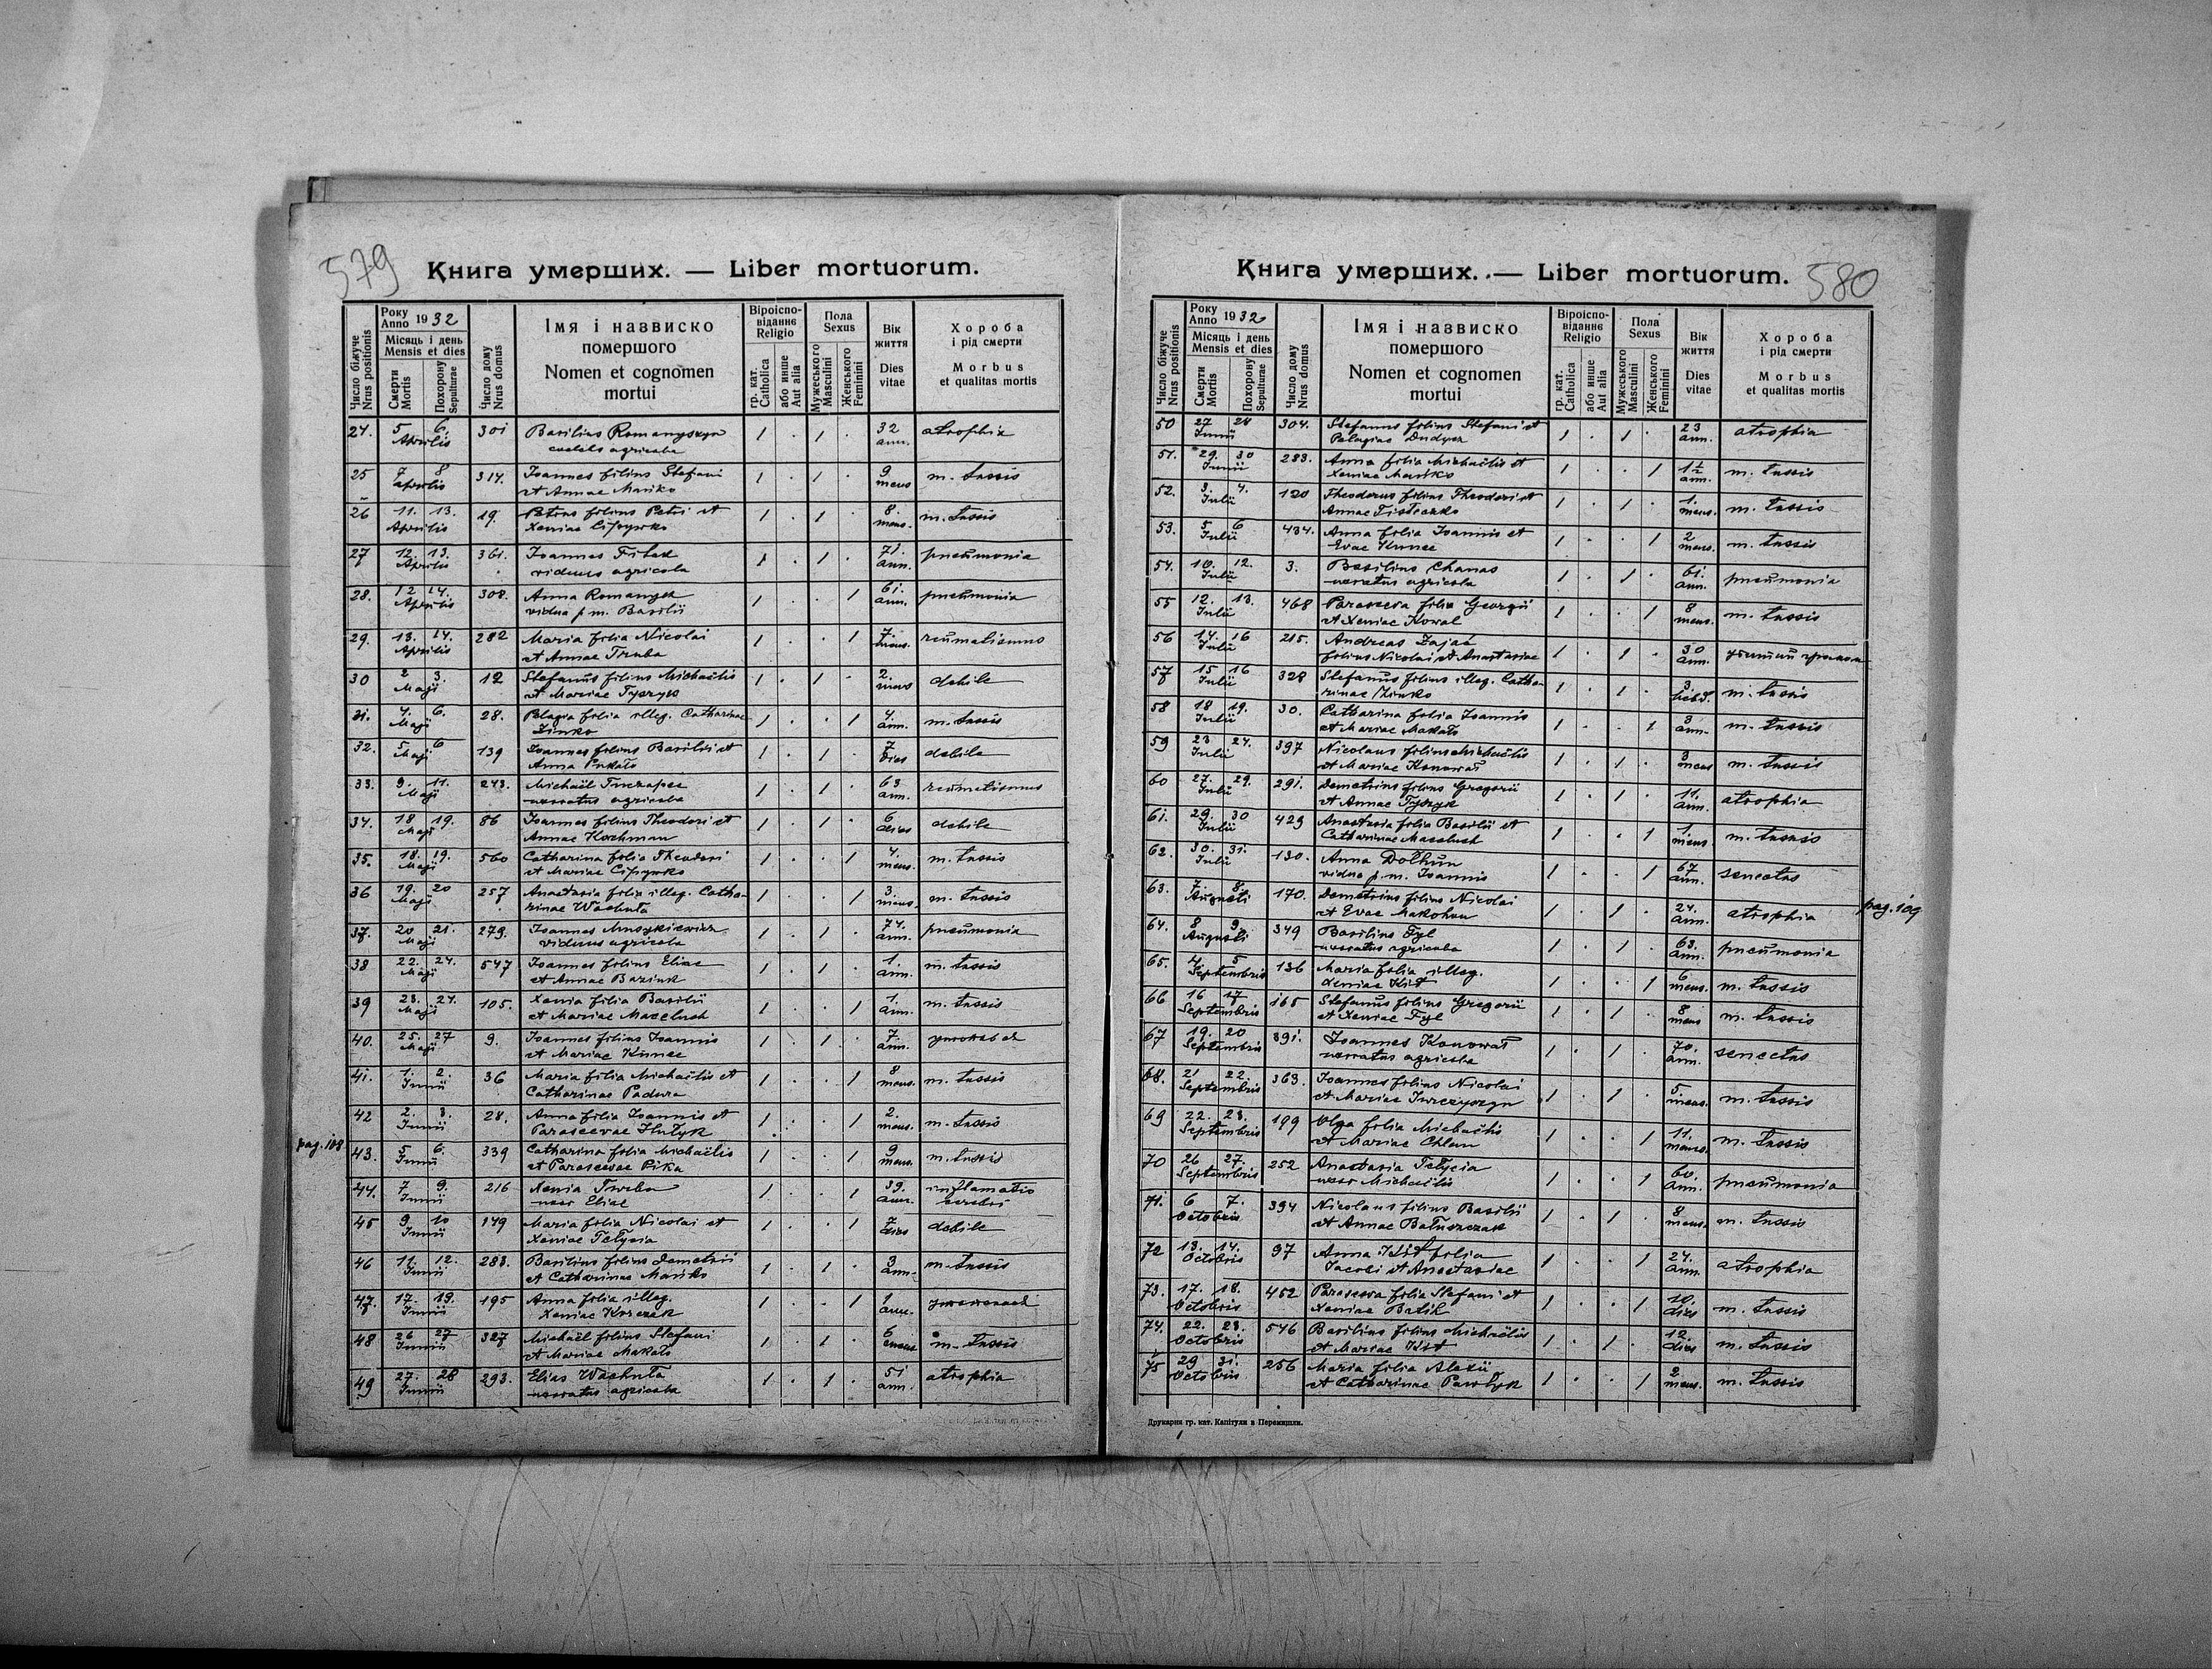 579
Книга умерших. — Liber mortuorum.
Число біжуче Nrus positionis
Року Anno 1932
Місяць і день Mensis et dies
Смерти Mortis
Похорону Sepulturae
Число дому Nrus domus
Імя і назвиско помершого Nomen et cognomen mortui
Віроіспо-віданнє Religio
гр. кат. Catholica
або инше Aut alia
Пола Sexus
Мужеського Masculini
Женського Feminini
Вік життя Dies vitae
Хороба і рід смерти Morbus et qualitas mortis
24. 5 6. Aprilis 301 Basilius Romanyszyn 1 . 1 . 32 ann. atrophia
caelebs agricola
25 7 8 Aprilis 314. Ioannes filius Stefani 1 . 1 . 9 mens m. tussis
et Annae Mariko
26 11. 13. Aprilis 19. Petrus filius Petri et 1 . 1 . 8. mens. m. tussis
Xeniae
27 12. 13. Aprilis 361. Ioannes Fitak 1 . 1 . 71. ann. pneumonia
viduus agricola
28. 12 14. Aprilis 308. Anna Romanyk 1 . . 1 61. ann. pneumonia
vidua p. m. Basilii
29. 13. 14. Aprilis 282 Maria filia Nicolai 1 . . 1 7. mens. reumatismus
et Annae Truba
30 2 3. Maji 12 Stefanus filius Michaëlis 1 . 1 . 2. mens debile
et Mariae Tyszyk
31. 4. 6. Maji 28. Pelagia filia illeg. Catharinae 1 . . 1 4. ann. m. tussis
Zinko
32. 5 6 Maji 139 Ioannes filius Basilii et 1 . 1 . 7 dies debile
Anna Pukało
33. 9. 11. Maji 243. Michaël 1 . 1 . 63 ann. reumatismus
uxoratus agricola
34. 18 19. Maji 86 Ioannes filius Theodori et 1 . 1 . 6 dies debile
Annae Kochman
35. 18. 19. Maji 560 Catharina filia Theodori 1 . . 1 4. mens. m. tussis
et Mariae
36 19. 20 Maji 257 Anastasia filia illeg. Catha- 1 . . 1 3. mens. m. tussis
rinae Wachuta
37. 20 21. Maji 279. Ioannes Musykiewicz 1 . 1 . 74. ann. pneumonia
viduus agricola
38 22. 24. Maji 547 Ioannes filius Eliae 1 . 1 . 1. ann. m. tussis
et Annae Baziuk
39 23. 24. Maji 105. Xenia filia Basilii 1 . . 1 1. ann. m. tussis
et Mariae Maceluch
40. 25. 27 Maji 9. Ioannes filius Ioannis 1 . 1 . 7. ann.
et Mariae Kunec
41. 1. 2. Iunii 36 Maria filia Michaëlis et 1 . . 1 8 mens. m. tussis
Catharinae Padura
42 2. 3. Iunii 28. Anna filia Ioannis et 1 . . 1 2. mens. m. tussis
Parascevae Hułyk
pag. 108
43. 5 6. Iunii 339 Catharina filia Michaëlis 1 . . 1 9 mens. m. tussis
et Parascevae Pika
44. 7 9. Iunii 216 Xenia Truba 1 . . 1 39. ann. inflamatio
uxor Eliae cerebri
45 9 10 Iunii 149 Maria filia Nicolai et 1 . . 1 7 dies debile
Xeniae Tetycia
46 11. 12. Iunii 283. Basilius filius Demetrii 1 . 1 . 3 ann. m. tussis
et Catharinae Mariko
47. 17. 19. Iunii 195 Anna filia illeg. 1 . . 1 1 ann.
Xeniae Koszczak
48 26 27 Iunii 327 Michaël filius Stefani 1 . 1 . 6 mens m. tussis
et Mariae Makało
49 27. 28 Iunii 293. Elias Wachuta 1 . 1 . 51 ann. atrophia
uxoratus agricola
Книга умерших. — Liber mortuorum.
580
Число біжуче Nrus positionis
Року Anno 1932
Місяць і день Mensis et dies
Смерти Mortis
Похорону Sepulturae
Число дому Nrus domus
Імя і назвиско помершого Nomen et cognomen mortui
Віроіспо-віданнє Religio
гр. кат. Catholica
або инше Aut alia
Пола Sexus
Мужеського Masculini
Женського Feminini
Вік життя Dies vitae
Хороба і рід смерти Morbus et qualitas mortis
50 27 28 Iunii 304. Stefanus filius Stefani et 1 . 1 . 23 ann. atrophia
Pelagiae Dudycz
51. 29. 30 Iunii 283. Anna filia Michaëlis et 1 . . 1 1½ ann. m. tussis
Xeniae Mariko
52. 3. 4. Iulii 120 Theodorus filius Theodori et 1 . 1 . 1. mens. m. tussis
Annae
53. 5 6 Iulii 434. Anna filia Ioannis et 1 . . 1 2 mens. m. tussis
Evae Kunec
54. 10. 12. Iulii 3. Basilius Chanas 1 . 1 . 61. ann. pneumonia
uxoratus agricola
55 12. 13. Iulii 468 Parasceva filia Georgii 1 . . 1 8 mens. m. tussis
et Xeniae Kowal
56 14. 16 Iulii 215. Andreas Zając 1 . 1 . 30 ann.
filius Nicolai et Anastasiae
57 15 16 Iulii 328 Stefanus filius illeg. Catha- 1 . 1 . 3 hebd. m. tussis
rinae Zinko
58 18 19. Iulii 30. Catharina filia Ioannis 1 . . 1 3 ann. m. tussis
et Mariae Makało
59 23 24. Iulii 397 Nicolaus filius Michaëlis 1 . 1 . 3 mens m. tussis
et Mariae Konował
60 27. 29. Iulii 291. Demetrius filius Gregorii 1 . 1 . 11. ann. atrophia
et Annae Tyszyk
61. 29. 30 Iulii 429 Anastasia filia Basilii et 1 . . 1 1. mens. m. tussis
Catharinae Maceluch
62. 30. 31. Iulii 130. Anna Dołhun 1 . . 1 67 ann. senectus
vidua p. m. Ioannis
63. 7. 8. Augusti 170. Demetrius filius Nicolai 1 . 1 . 24. ann. atrophia
et Evae Makohon
pag. 109
64. 8 9. Augusti 349 Basilius Fyl 1 . 1 . 63. ann. pneumonia
uxoratus agricola
65. 4. 5 Septembris 136 Maria filia illeg. 1 . . 1 6 mens. m. tussis
Xeniae Kit
66 16 17 Septembris 165 Stefanus filius Gregorii 1 . 1 . 8 mens m. tussis
et Xeniae Fyl
67 19. 20 Septembris 391. Ioannes Konował 1 . 1 . 70. ann. senectus
uxoratus agricola
68. 21 22. Septembris 363. Ioannes filius Nicolai 1 . 1 . 5 mens. m. tussis
et Mariae Iurczyszyn
69 22. 23. Septembris 199 Olga filia Michaëlis 1 . . 1 11. mens. m. tussis
et Mariae Chlan
70 26 27. Septembris 252 Anastasia Tetycia 1 . . 1 60. ann. pneumonia
uxor Michaëlis
71. 6 7. Octobris 394 Nicolaus filius Basilii 1 . 1 . 8 mens. m. tussis
et Annae Batuszczak
72 13. 14. Octobris 97 Anna Kit filia 1 . . 1 24. ann. atrophia
Iacobi et Anastasiae
73. 17. 18. Octobris 452 Parasceva filia Stefani et 1 . . 1 10. dies m. tussis
Xeniae Batih
74. 22. 23. Octobris 546 Basilius filius Michaëlis 1 . 1 . 12. dies m. tussis
et Mariae Kit
75 29 31. Octobris 256 Maria filia Alexii 1 . . 1 2 mens. m. tussis
et Catharinae Pawłyk
Друкарня гр. кат. Капітули в Перемишли.